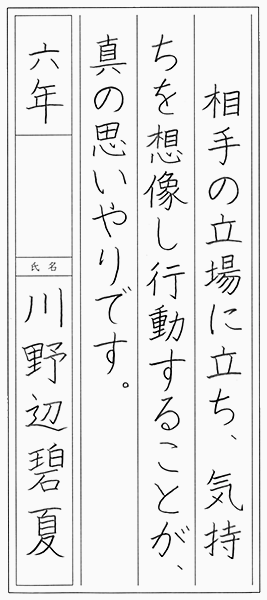 相手の立場に立ち、気持
ちを想像し行動することが、
真の思いやりです。
六年
氏名
川野辺碧夏